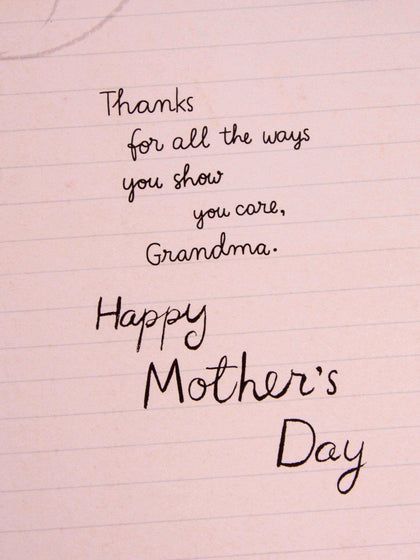 Thanks
for all the ways
you show
you care,
Grandma.
Happy
Mother's
Day